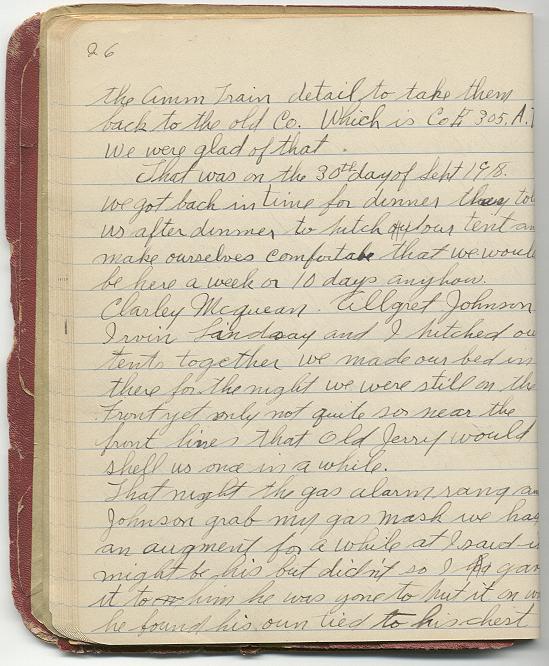 26
the Amm Train detail to take them
back to the old Co. Which is Co F 305, A.T
We were glad of that.
That was on the 30th day of Sept 1918.
we got back in time for dinner they tol
us after dinnmer to pitch our tent an
make ourselves comfortabe that we woul
be here a week or 10 days anyhow.
Clarley Mcguean. Johnson
Irvin Landsay and I pitched ou
tents together we made our bed in
there for the night we were still on the
Front yet only not quite sor near the
front lines that Old Jerry would
shell us once in a while.
That night the gas alarm rang an
Johnson grab my gas mask we had
an augment for a while at I said i
might be his but didn't so I gave
it to him he was gone to put it on w
he found his oun tied to his chest